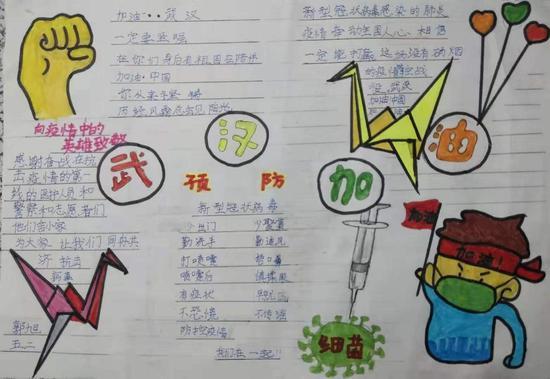 加油··武汉
一定要坚强
在你们身后有祖国在陪伴
加油·中国
你从来不曾
历经风霜总会见阳光
新型冠状病毒感染的肺炎
疫情牵动全国人心 相信
一定能打赢这场没有硝烟
的疫情
武汉
加油中国
向疫情中的
英雄致敬
感谢奋战在抗
击疫情的第一
线的医护人员和
警察和志愿者们
他们舍小家
为大家 让我们同舟共
济 抗击
病毒
武
汉
加
油
预 防
新型冠状病毒
少出门 少聚集
勤洗手 勤通风
打喷嚏 捂口鼻
喷嚏后 慎揉眼
有症状
不恐慌 不传谣
防控疫情
我们在一起!!
加油
加油!
细菌
郭旭
五二